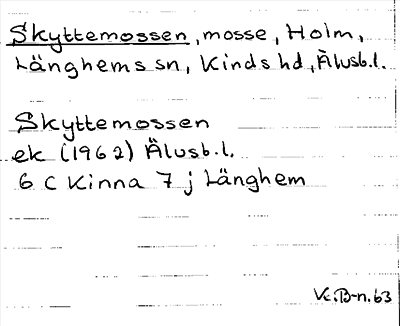 Skyttemossen, mosse, Holm,
Länghems sn, Kinds hd, Älvsb.l.
Skyttemossen
ek (1962) Älvsb.l.
6 C Kinna 7 j Länghem
Vc.B-n.63